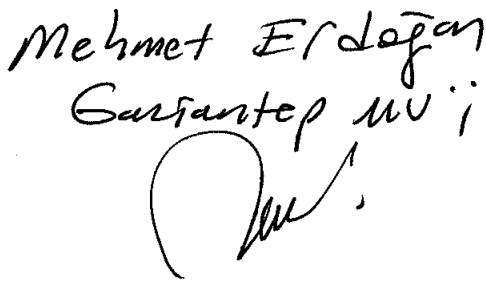 Mehmet Erdoğan
Gaziantep MV